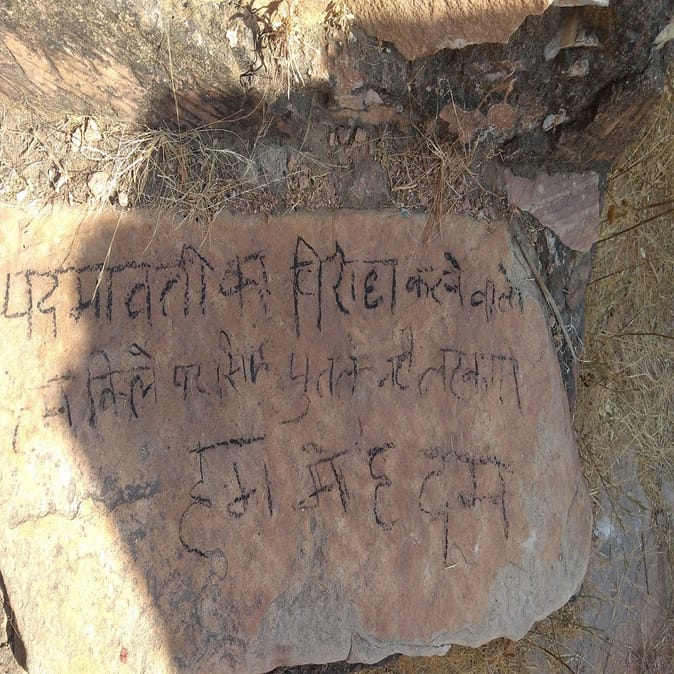 पदमावती का विरोधा करने वाले
हम किले पर सिर्फ पुतले नही लटकाते
हम मे है दूम